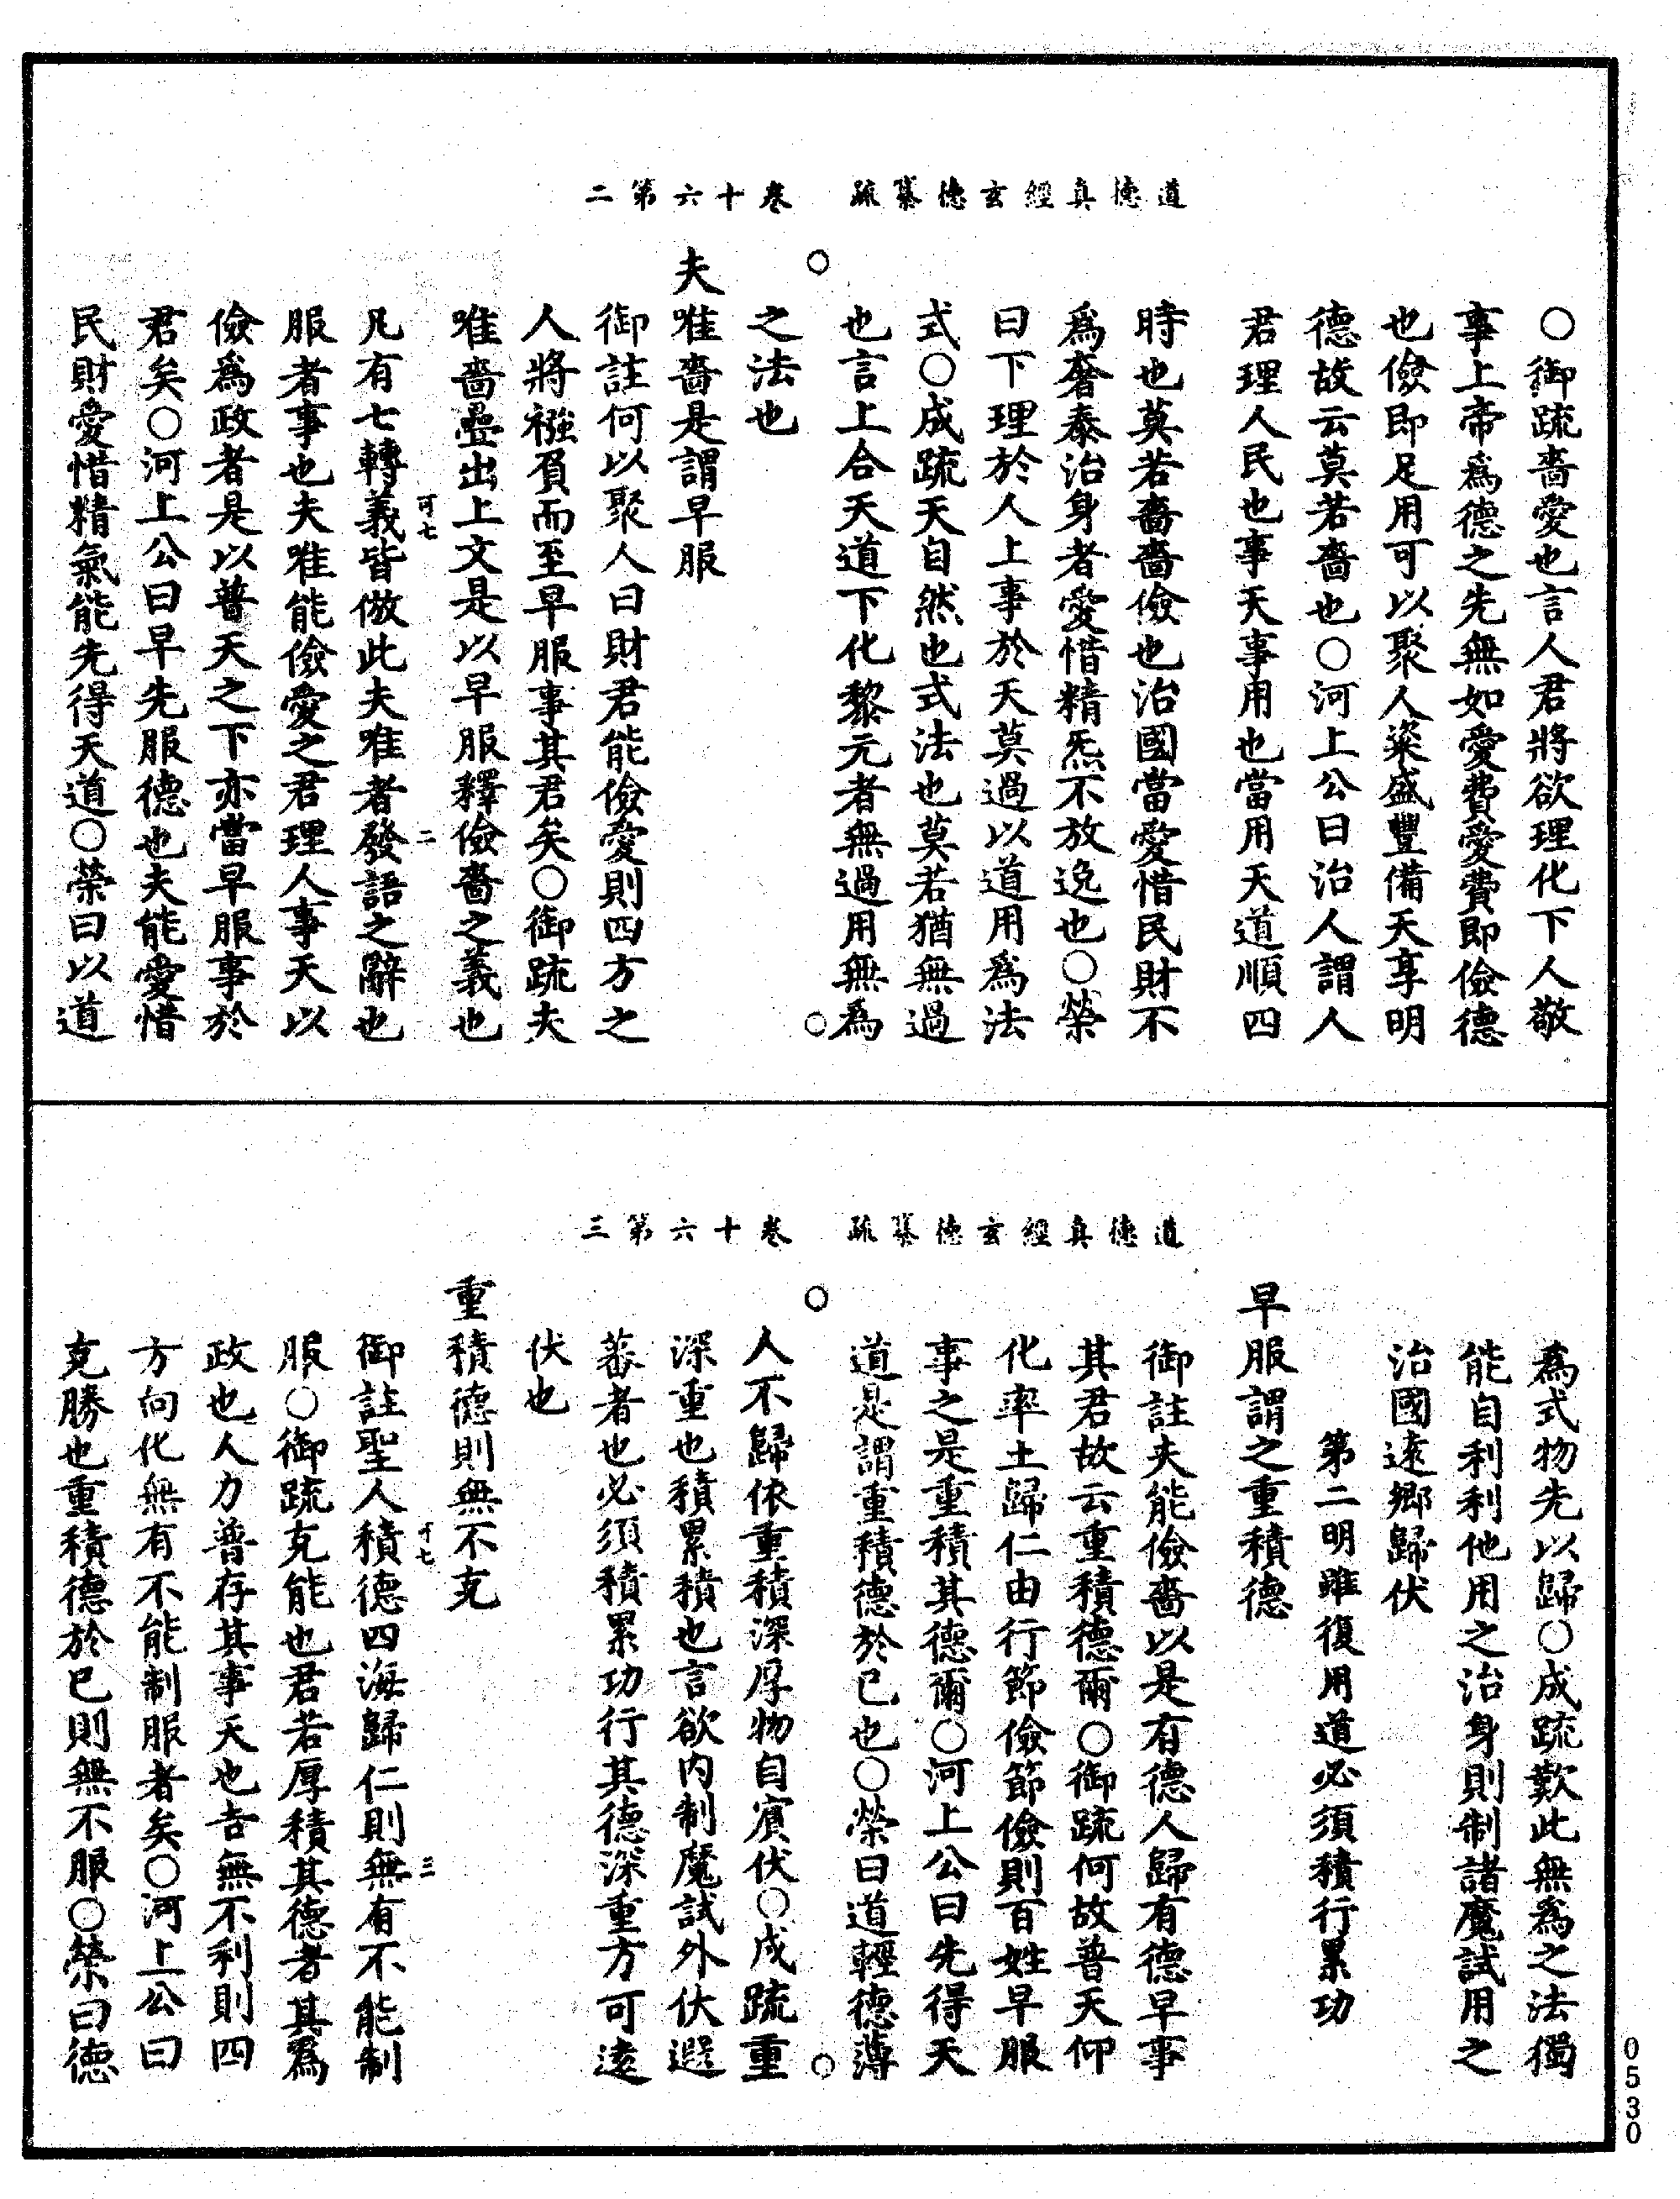 道德真經玄德纂疏　卷十六第二
○御疏嗇愛也言人君將欲理化下人敬
事上帝爲德之先無如愛費愛費即儉德
也儉即足用可以聚人粢盛豐備天享明
德故云莫若嗇也○河上公曰治人謂人
君理人民也事天事用也當用天道順四
時也莫若嗇嗇儉也治國當愛惜民財不
爲奢泰治身者愛惜精炁不放逸也○榮
曰下理於人上事於天莫過以道用爲法
式○成疏天自然也式法也莫若猶無過
也言上合天道下化黎元者無過用無爲
之法也
夫唯嗇是謂早服
御註何以聚人曰財君能儉愛則四方之
人將襁負而至早服事其君矣○御疏夫
唯嗇疊出上文是以早服釋儉嗇之義也
可七　二
凡有七轉義皆倣此夫唯者發語之辭也
服者事也夫唯能儉愛之君理人事天以
儉爲政者是以普天之下亦當早服事於
君矣○河上公曰早先服德也夫能愛惜
民財愛惜精氣能先得天道○榮曰以道
道德真經玄德纂疏　卷十六第三
爲式物先以歸○成疏歎此無爲之法獨
能自利利他用之治身則制諸魔試用之
治國遠鄉歸伏
第二明雖復用道必須積行累功
早服謂之重積德
御註夫能儉嗇以是有德人歸有德早事
其君故云重積德爾○御疏何故普天仰
化率土歸仁由行節儉節儉則百姓早服
事之是重積其德爾○河上公曰先得天
道是謂重積德於已也○榮曰道輕德薄
人不歸依重積深厚物自賓伏○成疏重
深重也積累積也言欲內制魔試外伏遐
蕃者也必須積累功行其德深重方可遠
伏也
重積德則無不克
可七　三
御註聖人積德四海歸仁則無有不能制
服○御疏克能也君若厚積其德者其爲
政也人力普存其事天也吉無不利則四
方向化無有不能制服者矣○河上公曰
克勝也重積德於已則無不服○榮曰德
0530